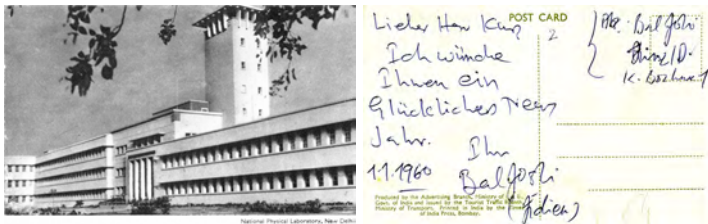 National Physical Laboratory, New Delhi
POST CARD
Lieber Herr Kurz
Ich wünsche
Ihnen ein
Glückliches Neues
Jahr.
Ihr
1.1.1960 Bal Joshi
(Indien)
2
Bal Joshi
Produced by the Advertising Branch, Ministry of
Govt. of India and issued by the Tourist Traffic
Ministry of Transport. Printed in India by the
of India Press, Bombay.